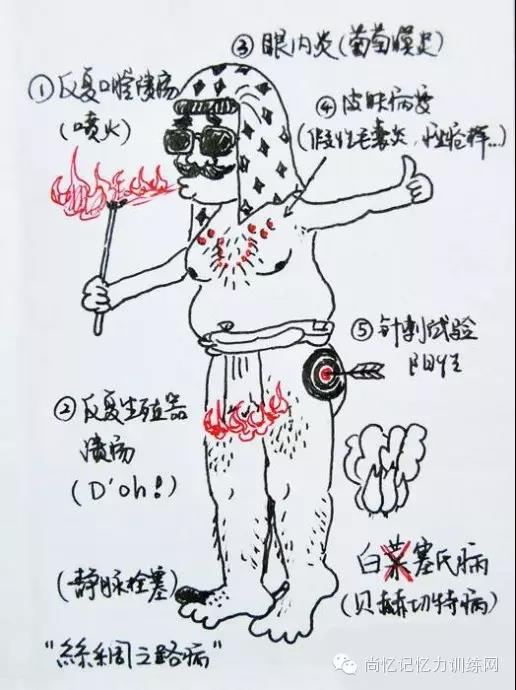 ③ 眼内炎(葡萄膜炎)
① 反复口腔溃疡
(喷火)
④ 皮肤病变
(假性毛囊炎,痤疮样...)
⑤ 针刺试验
阳性
② 反复生殖器
溃疡
(D'oh!)
(静脉栓塞)
白菜塞氏病
(贝赫切特病)
"絲綢之路病"
尚忆记忆力训练网